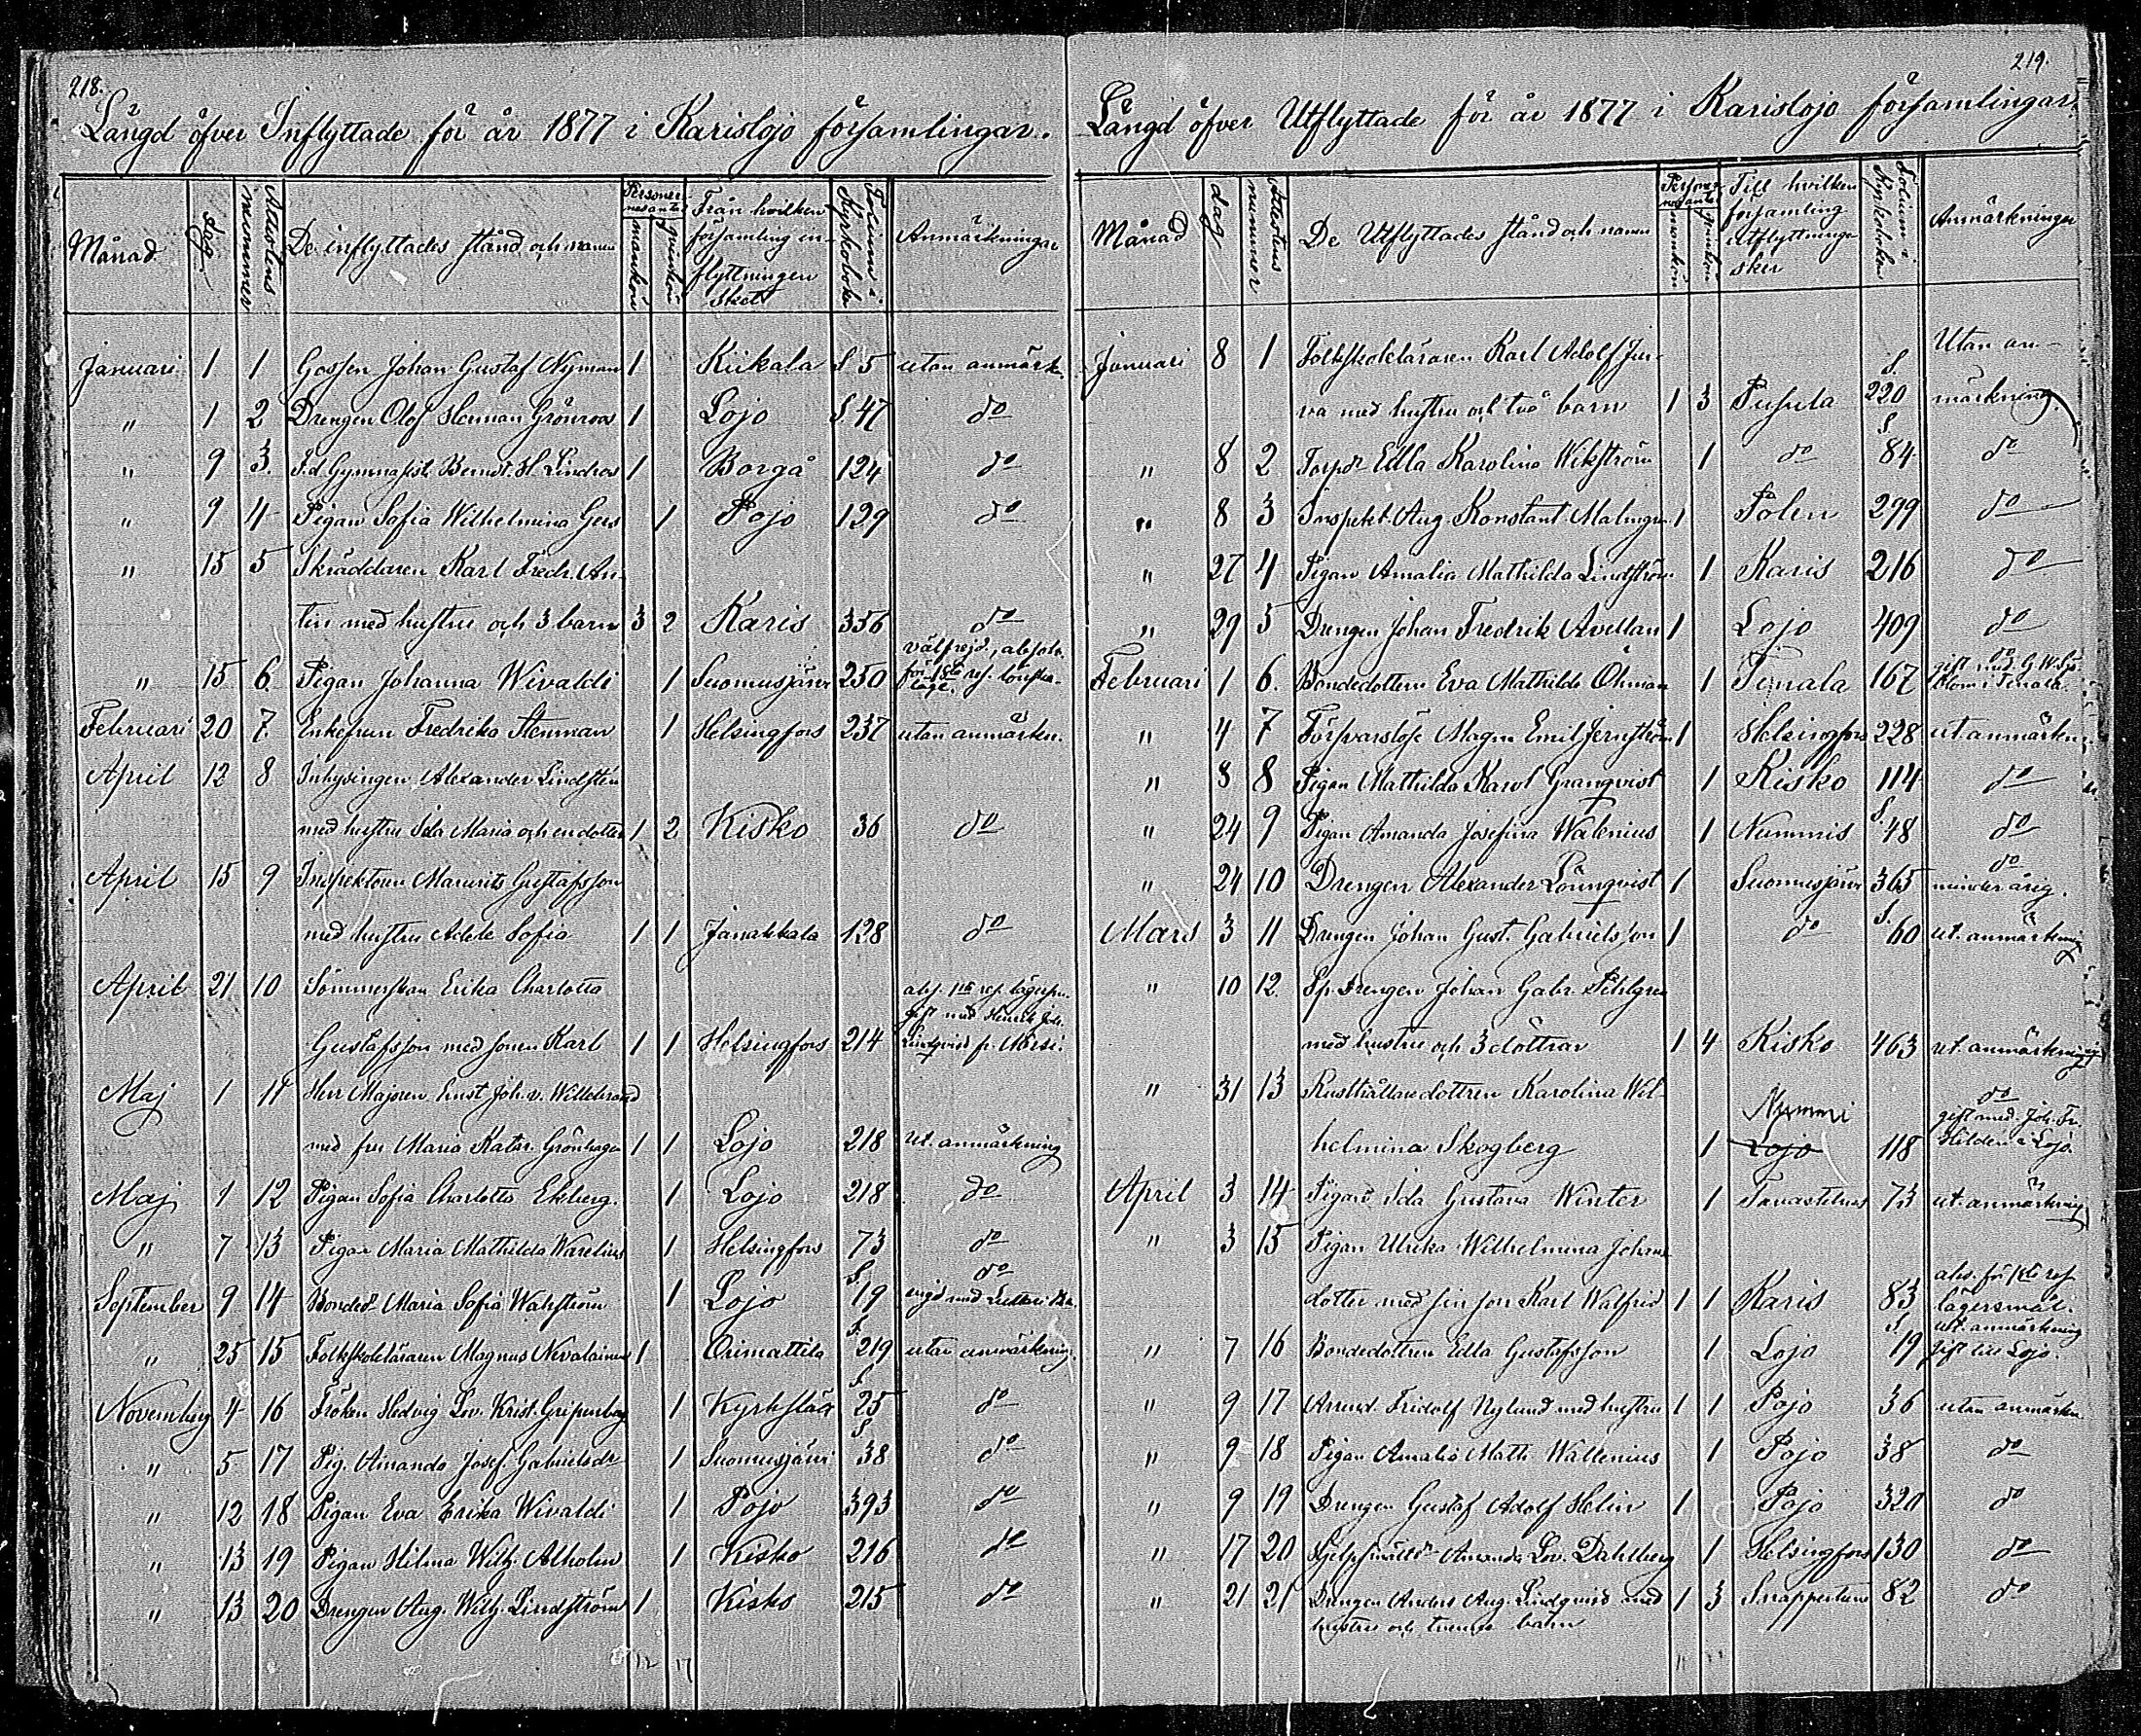 218.
Längd öfver Inflyttade för år 1877 i Karislojo församlingar.
Månad
dag
Attestens nummer
De inflyttades stånd och namn
Personernas antal
mankön
qvinkön
Från hvilken
församling in-
flyttningen
skett
Folium i Kyrkoboken
Anmärkningar
Januari 1 1 Gossen Johan Gustaf Nyman 1 Kiikala S 5 utan anmärk.
" 1 2 Drengen Olof Herman Grönroos 1 Lojo S. 47 do
" 9 3. F.d. Gymnasist. Berndt. H. Lindroos 1 Borgå 124 do
" 9 4 Pigan Sofia Wilhelmina Gers 1 Pojo 129 do
" 15 5 Skräddaren Karl Fredr. An-
tin med hustru och 3 barn 3 2 Karis 356 do
" 15 6. Pigan Johanna Wivaldi 1 Suomusjärvi 250 välfrejd., absolv.
för 1sta res.
läge.
Februari 20 7. Enkefrun Fredrika Stenman 1 Helsingfors 237 utan anmärkn.
April 12 8 Inhysingen Alexander Lindsten
med hustru Ida Maria och en dotter 1 2 Kisko 36 do
April 15 9 Inspektoren Maurits Gustafsson
med hustru Adele Sofia 1 1 Janakkala 128 do
April 21 10 Sömmerskan Erika Charlotta
Gustafsson med sonen Karl 1 1 Helsingfors 214 abs. 1sta res. lägersm.
gift med Henrik Joh.
Lindqvist fr.
Maj 1 11 Herr Majoren Ernst Joh. v. Willebrand
med fru Maria Katar. Grönhagen 1 1 Lojo 218 ut. anmärkning
Maj 1 12 Pigan Sofia Charlotta Ekberg. 1 Lojo 218 do
" 7 13 Pigan Maria Mathilda Warelius 1 Helsingfors 73 do
September 9 14 Bondedr Maria Sofia Wahlström 1 Lojo S. 19 do
" 25 15 Folkskoleläraren Magnus Nevalainen 1 Orimattila S. 219 utan anmärkning.
November 4 16 Fröken Hedvig Lov. Krist. Gripenberg 1 Kyrkslätt S. 25 do
" 5 17 Pig. Amanda Josef. Gabrielsdr 1 Suomusjärvi S 38 do
" 12 18 Pigan Eva Erika Wivaldi 1 Pojo 393 do
" 13 19 Pigan Hilma Wilh. Alholm 1 Kisko 216 do
" 13 20 Drengen Aug. Wilh. Lindström 1 Kisko 215 do
12 17
219.
Längd öfver Utflyttade för år 1877 i Karislojo församlingar.
Månad
dag
Attestens nummer
De Utflyttades stånd och namn
Personernas antal
mankön
qvinkön
Till hvilken
församling
utflyttningen
sker
Folium i Kyrkoboken
Anmärkningar
Januari 8 1 Folkskoleläraren Karl Adolf Jur-
va med hustru och två barn 1 3 Pusula S. 220 Utan an-
märkning.
" 8 2 Torpdr Edla Karolina Wikström 1 do S. 84 do
" 8 3 Inspekt. Aug Konstant Malmgren 1 Polen 299 do
" 27 4 Pigan Amalia Mathilda Lindström 1 Karis 216 do
" 29 5 Drengen Johan Fredrik Avellan 1 Lojo 409 do
Februari 1 6. Bondedottern Eva Mathilda Öhman 1 Tenala 167 do
gift med G. W. Sjö-
blom i Tenala.
" 4 7 Försvarslöse Magn Emil Jernström 1 Helsingfors 228 ut. anmärkn.
" 8 8 Pigan Mathilda Karol Granqvist 1 Kisko 114 do
" 24 9 Pigan Amanda Josefina Walenius 1 Nummis S. 48 do
" 24 10 Drengen Alexander Lönnqvist 1 Suomusjärvi 365 do
minderårig.
Mars 3 11 Drengen Johan Gust. Gabrielsson 1 do S. 60 ut. anmärkning
" 10 12. Sp. Drengen Johan Gabr. Pihlgren
med hustru och 3 döttrar 1 4 Kisko 463 ut. anmärkning
" 31 13 Rusthållaredottren Karolina Wil-
helmina Skogberg 1 Nummi Lojo 118 do
gift med Joh. Fr.
Hilden i Lojo.
April 3 14 Pigan Ida Gustava Winter 1 Tavastehus 73 ut. anmärkning
" 3 15 Pigan Ulrika Wilhelmina Johans
dotter med sin son Karl Walfrid 1 1 Karis 83 abs. för 1sta res
lägersmål.
" 7 16 Bondedottren Edla Gustafsson 1 Lojo S. 19 ut. anmärkning
gift till Lojo.
" 9 17 Arrend. Fridolf Nylund med hustru 1 1 Pojo 36 utan anmärkn
" 9 18 Pigan Amalia Math Wallenius 1 Pojo 38 do
" 9 19 Drengen Gustaf Adolf Helin 1 Pojo 320 do
" 17 20 Amanda Lov. Dahlberg 1 Helsingfors 130 do
" 21 21 Drengen Anders Aug. Lindqvist med 1 3 Snappertuna 82 do
hustru och tvenne barn